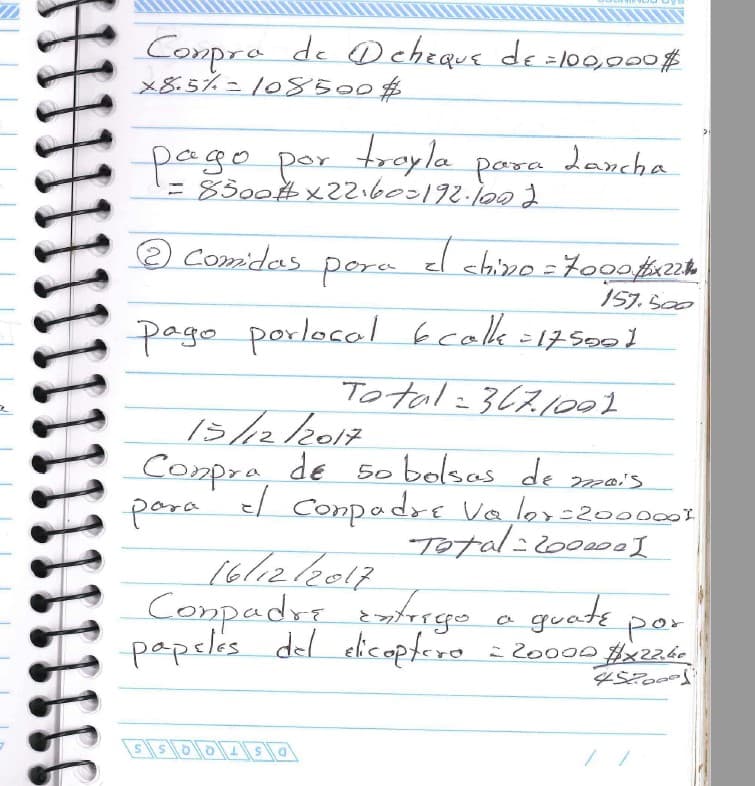 Conpra de ① cheque de =100,000$
x8.5% = 108500$
pago por trayla para Lancha
= 8500$ x22.60=192.100 L
② Comidas para el chino = 7000 $x22.
157.500
pago por local 6 calle = 17500 L
Total = 367.100 L
15/12/2017
Conpra de 50 bolsas de mais
para el Conpadre Valor=200000 L
Total = 200000 L
16/12/2017
Conpadre entrego a guate por
papeles del elicoptero = 20000 $x22.60
452.000 L
DSTOOSS
/ /